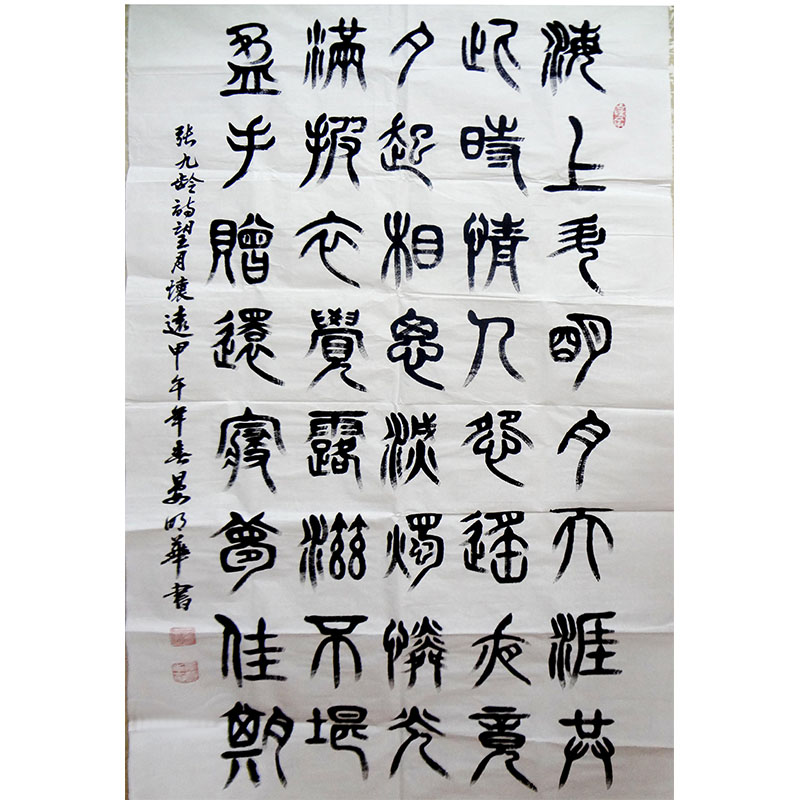 海上生明月天涯共
此時情人怨遙夜竟
夕起相思滅燭憐光
滿披衣覺露滋不堪
盈手贈還寢夢佳期
張九齡詩望月懷遠甲午年春晏明華書